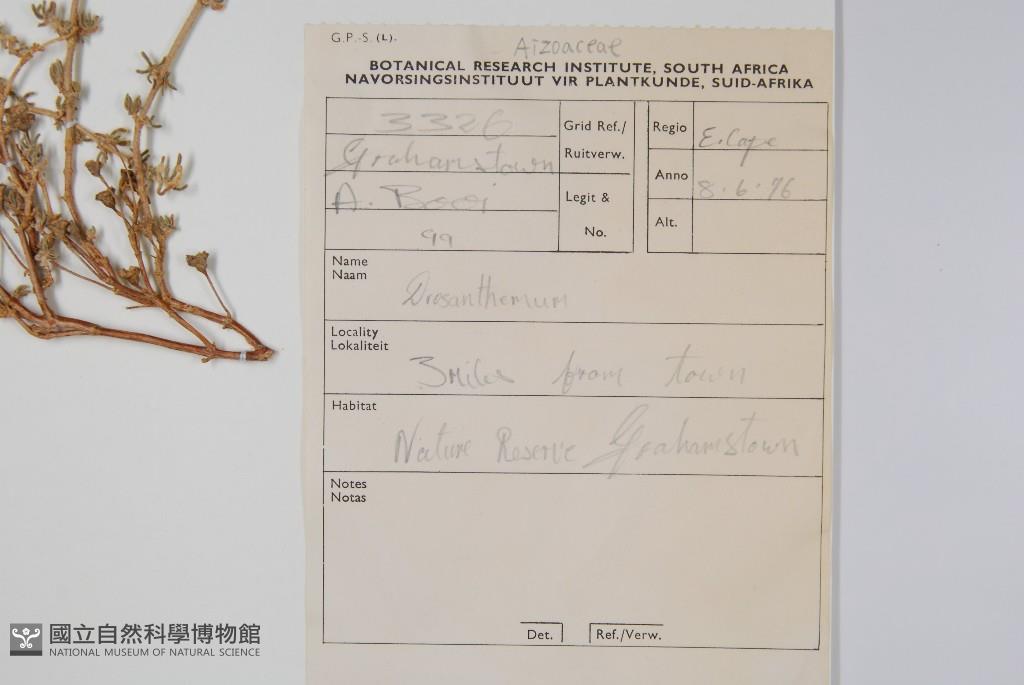 G.P.-S. (L).
Aizoaceae
BOTANICAL RESEARCH INSTITUTE, SOUTH AFRICA
NAVORSINGSINSTITUUT VIR PLANTKUNDE, SUID-AFRIKA
3326
Grid Ref./
Ruitverw.
Grahamstown
A. Booi
Legit &
No.
99
Regio
E. Cape
Anno
8.6.76
Alt.
Name
Naam
Drosanthemum
Locality
Lokaliteit
3 Miles from town
Habitat
Nature Reserve Grahamstown
Notes
Notas
Det.
Ref./Verw.
國立自然科學博物館
NATIONAL MUSEUM OF NATURAL SCIENCE